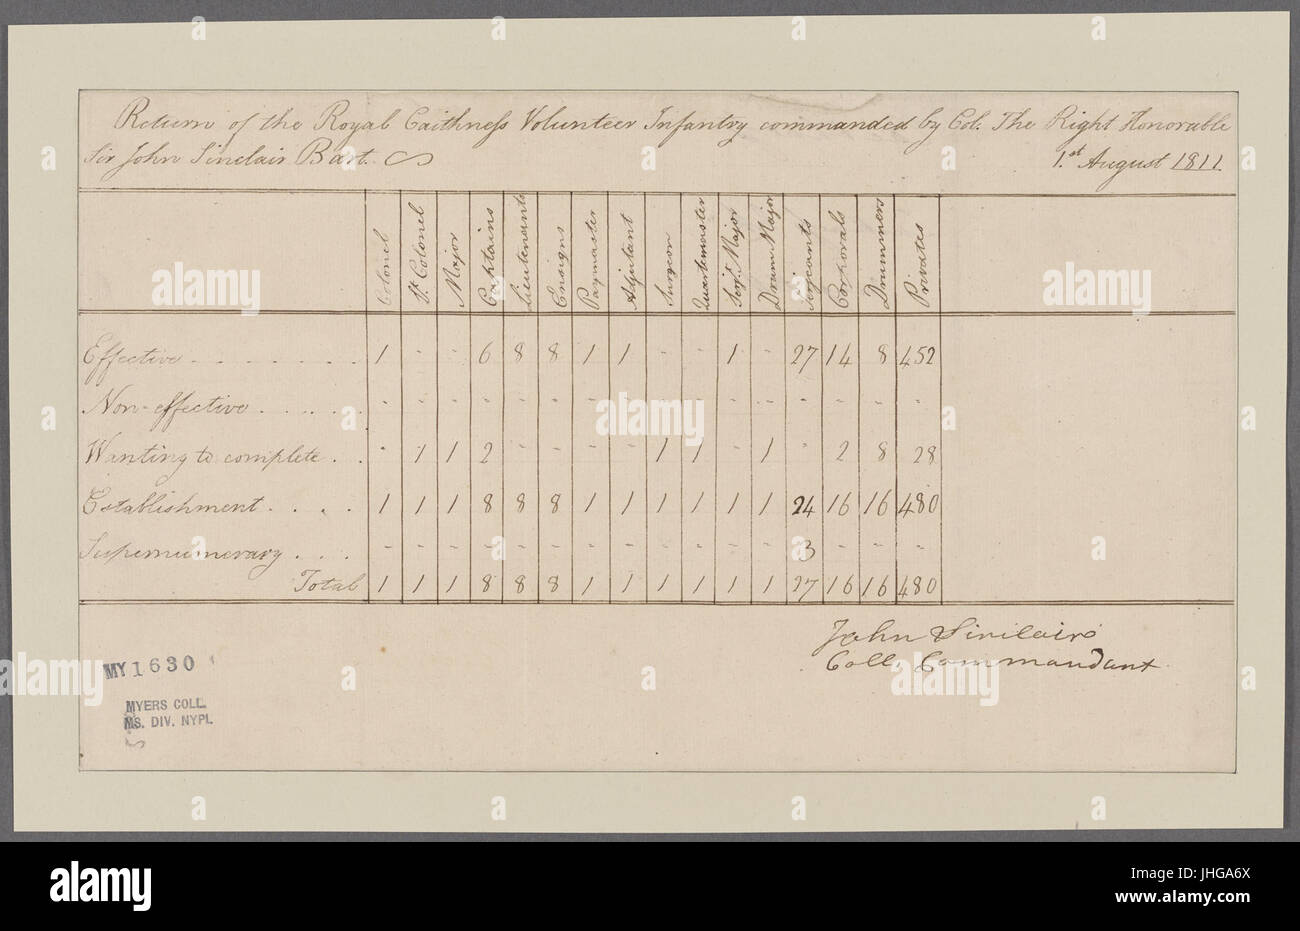 Return of the Royal Caithness Volunteer Infantry commanded by Col. The Right Honorable
Sir John Sinclair Bart. 1.st August 1811
Colonel Lt. Colonel Major Captains Lieutenants Ensigns Paymaster Adjutant Surgeon Quartermaster Serjt. Major Drum Major Serjeants Corporals Drummers Privates
Effective . . . . . . . . 1 - - 6 8 8 1 1 - - 1 - 27 14 8 452
Non-effective . . . . . - - - - - - - - - - - - - - - -
Wanting to complete . . - 1 1 2 - - - - 1 1 - 1 - 2 8 28
Establishment . . . . 1 1 1 8 8 8 1 1 1 1 1 1 24 16 16 480
Supernumerary . . . - - - - - - - - - - - - 3 - - -
Total 1 1 1 8 8 8 1 1 1 1 1 1 27 16 16 480
John Sinclair
Coll. Commandant
MY 1630
MYERS COLL.
MS. DIV. NYPL
alamy
alamy stock photo
JHGA6X
www.alamy.com